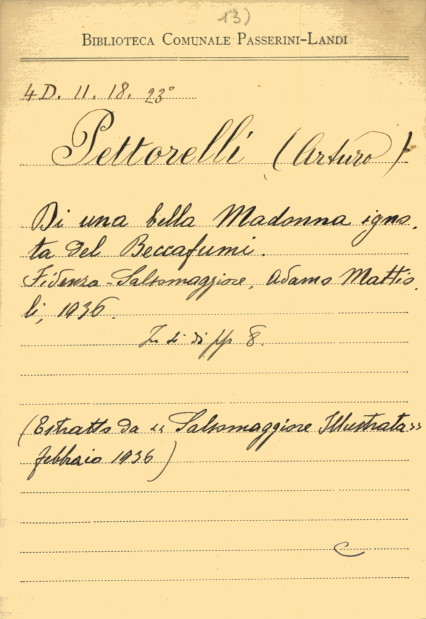 13)
BIBLIOTECA COMUNALE PASSERINI-LANDI
4 D. 11. 18. 23°
Pettorelli (Arturo)
Di una bella Madonna igno-
ta del Beccafumi.
Fidenza-Salsomaggiore, Adamo Mattio-
li, 1936.
di pp 8.
(Estratto da « Salsomaggiore Illustrata »
febbraio 1936)
C